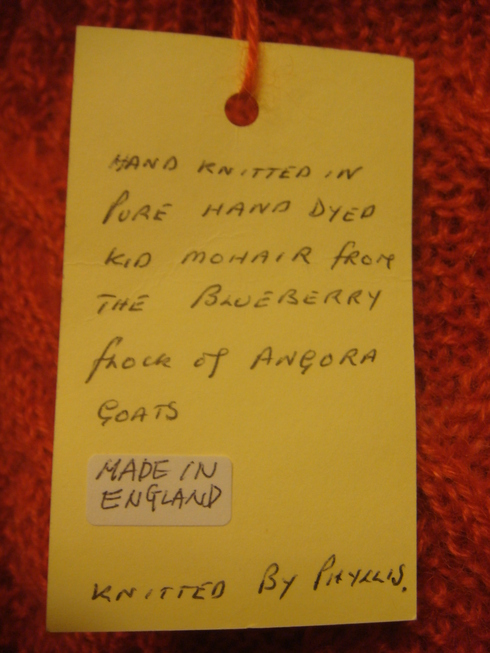 HAND KNITTED IN
PURE HAND DYED
KID MOHAIR from
THE BLUEBERRY
flock of ANGORA
GOATS
MADE IN
ENGLAND
KNITTED By PHYLLIS.